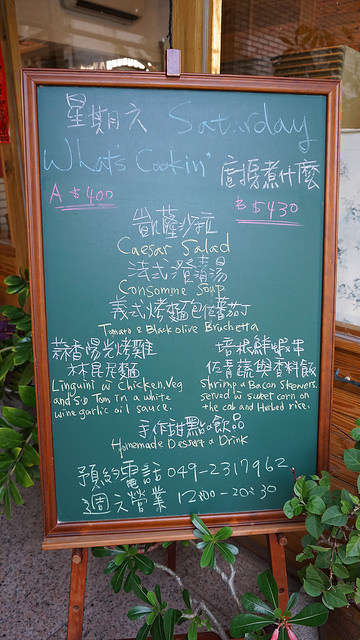 星期六 Saturday
What's Cookin' 廚房煮什麼
A $400
B $430
凱薩沙拉
Caesar Salad
法式澄清湯
Consomme Soup
義式烤麵包佐蕃茄丁
Tomato & Black olive Bruchetta
蒜香陽光烤雞
林貝尼麵
Linguini w Chicken, Veg
and S.D Tom in a white
wine garlic oil sauce.
培根鮮蝦串
佐青蔬與香料飯
Shrimp & Bacon Skewers
served w sweet corn on
the cob and Herbed rice.
手作甜點&飲品
Homemade Dessert & Drink
預約電話 049-2317962
週六營業 12:00-20:30